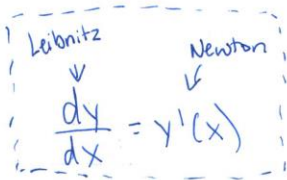 Leibnitz
Newton
dy/dx = y'(x)